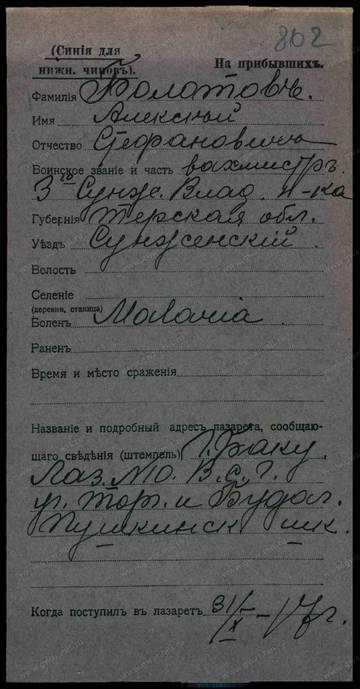 802
(Синія для
нижн. чиновъ).
На прибывшихъ.
Фамилія Болотовъ.
Имя Алексѣй
Отчество Стефановичъ
Воинское званіе и часть вахмистръ
3го Сунж. Влад. п-ка
Губернія Терская обл.
Уѣздъ Сунженскій
Волость
Селеніе
(деревня, станица)
Боленъ Малярія
Раненъ
Время и мѣсто сраженія
Названіе и подробный адресъ лазарета, сообщаю-
щаго свѣдѣнія (штемпель) г. Баку.
Лаз. № В.С.Г.
уг. Тор. и Будаг.
Пушкинск шк.
Когда поступилъ въ лазаретъ 31/X-17г.